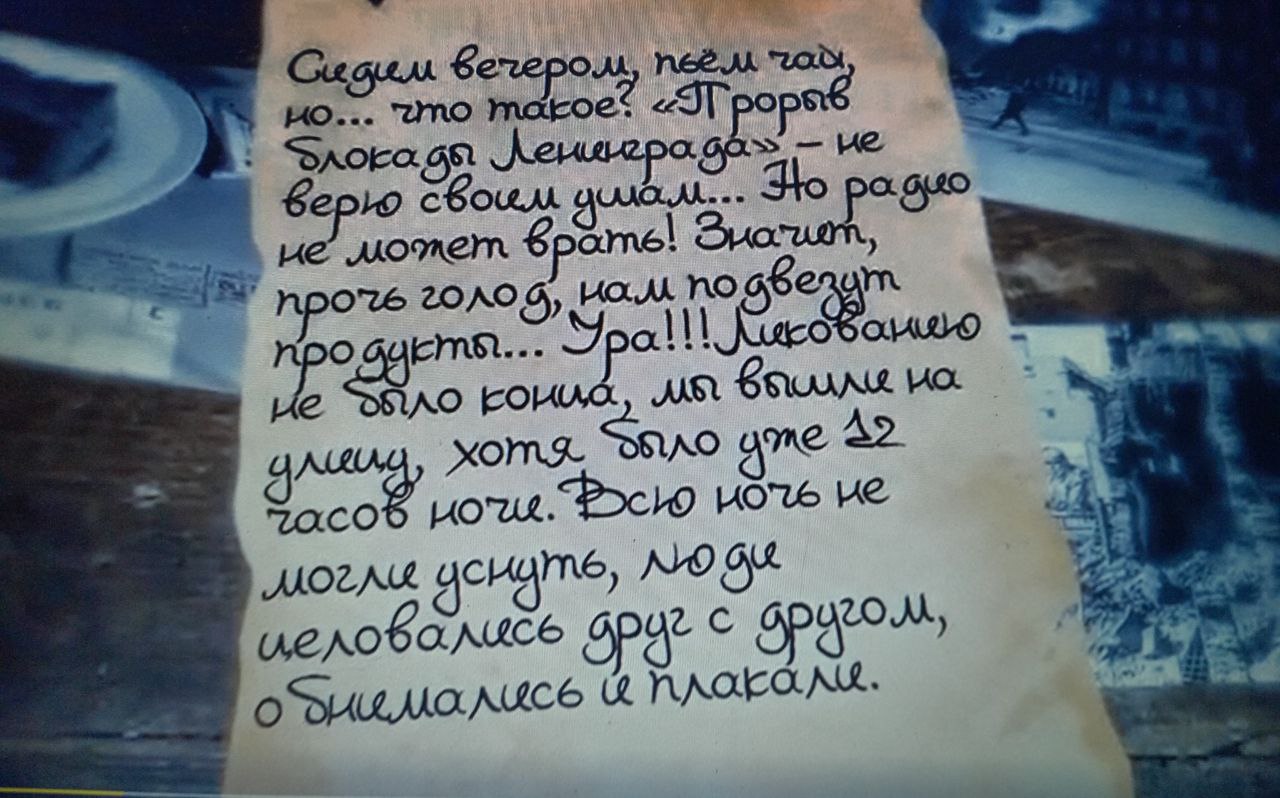 Сидим вечером, пьём чай,
но... что такое? «Прорыв
блокады Ленинграда» – не
верю своим ушам... Но радио
не может врать! Значит,
прочь голод, нам подвезут
продукты... Ура!!! Ликованию
не было конца, мы вышли на
улицу, хотя было уже 12
часов ночи. Всю ночь не
могли уснуть, люди
целовались друг с другом,
обнимались и плакали.